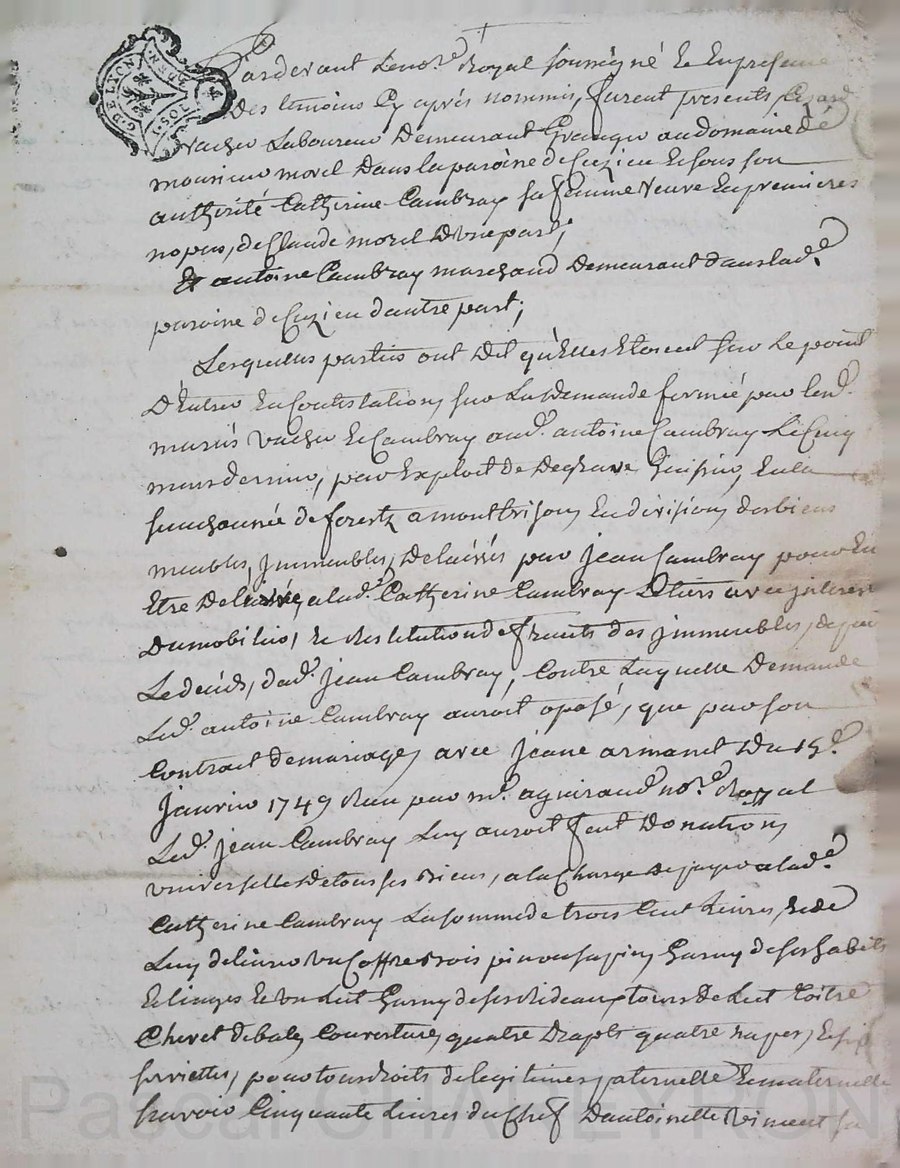 G. D. LYON
Pardevant Le no.re Royal soussigné Et En presence
Des temoins Cy aprés nommés, furent presents
vacher Laboureur Demeurant Granger au domaine de
monsieur morel Dans la paroisse de Cuzieu Et sous son
authorité Catherine Cambray sa femme veuve En premieres
nopces, de Claude morel D'une part;
Et antoine Cambray marchand Demeurant dans lad.e
paroisse de Cuzieu d'autre part;
Lesquelles parties ont Dit qu'Elles Etoient sur Le point
D'Entrer En Contestation, sur La Demande formée par lesd.
mariés vacher Et Cambray aud. antoine Cambray Le Cinq
mars dernier, par Exploit de huissier, En la
senechaussée de forestz a montbrison En division des biens
meubles, immeubles, Delaissés par Jean Cambray pour En
Etre Delaissé, a lad. Catherine Cambray avec interest
Du mobilier, Et restitution de fruits des immeubles, depuis
Le deceds, dud. Jean Cambray, Contre Laquelle Demande
Led. antoine Cambray auroit oposé, que par son
Contract de mariage, avec Jeane armanet Du 19.e
Janvier 1749 Reçu par m.e aguiraud no.re Royal
Led. Jean Cambray Luy auroit fait Donation
universelle De tous ses Biens, a la Charge de payer a lad.e
Catherine Cambray La somme de trois Cent Livres, Et de
Luy delivrer un Coffre bois pin ou sapin Garny de ses habits
Et linges Et un Lit Garny de ses Rideaux tours De Lit Coitre
Chevet de bale, Couverture, quatre Draps quatre napes, Et six
serviettes, pour tous droits de legitimes paternelle Et maternelle
savoir Cinquante Livres du Chef D'antoinette Vincent sa
Pascal CHALEYRON